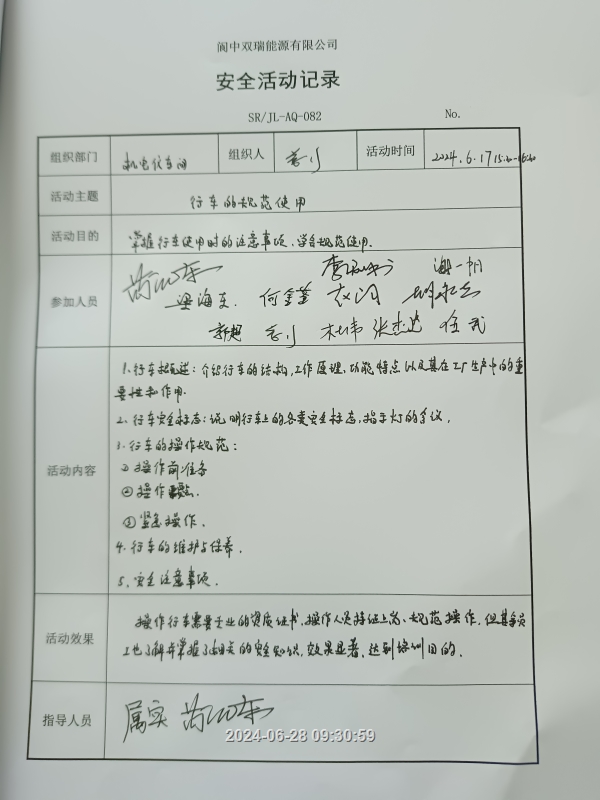 阆中双瑞能源有限公司
安全活动记录
SR/JL-AQ-082 No.
组织部门 机电仪车间 组织人 活动时间 2024.6.17 15:20-16:20
活动主题 行车的规范使用
活动目的 掌握行车使用时的注意事项,学会规范使用.
参加人员
梁海东 何金莲
杜伟 张杰 任武
活动内容
1.行车概述:介绍行车的结构,工作原理,功能特点以及其在工厂生产中的重
要性和作用.
2.行车安全标志:说明行车上的各类安全标志,指示灯的含议.
3.行车的操作规范:
①操作前准备
②操作
③紧急操作.
4.行车的维护与保养.
5.安全注意事项.
活动效果
操作行车需要专业的资质证书,操作人员持证上岗、规范操作,但其余员
工也了解并掌握了相关的安全知识,效果显著,达到培训目的.
指导人员 属实
2024-06-28 09:30:59